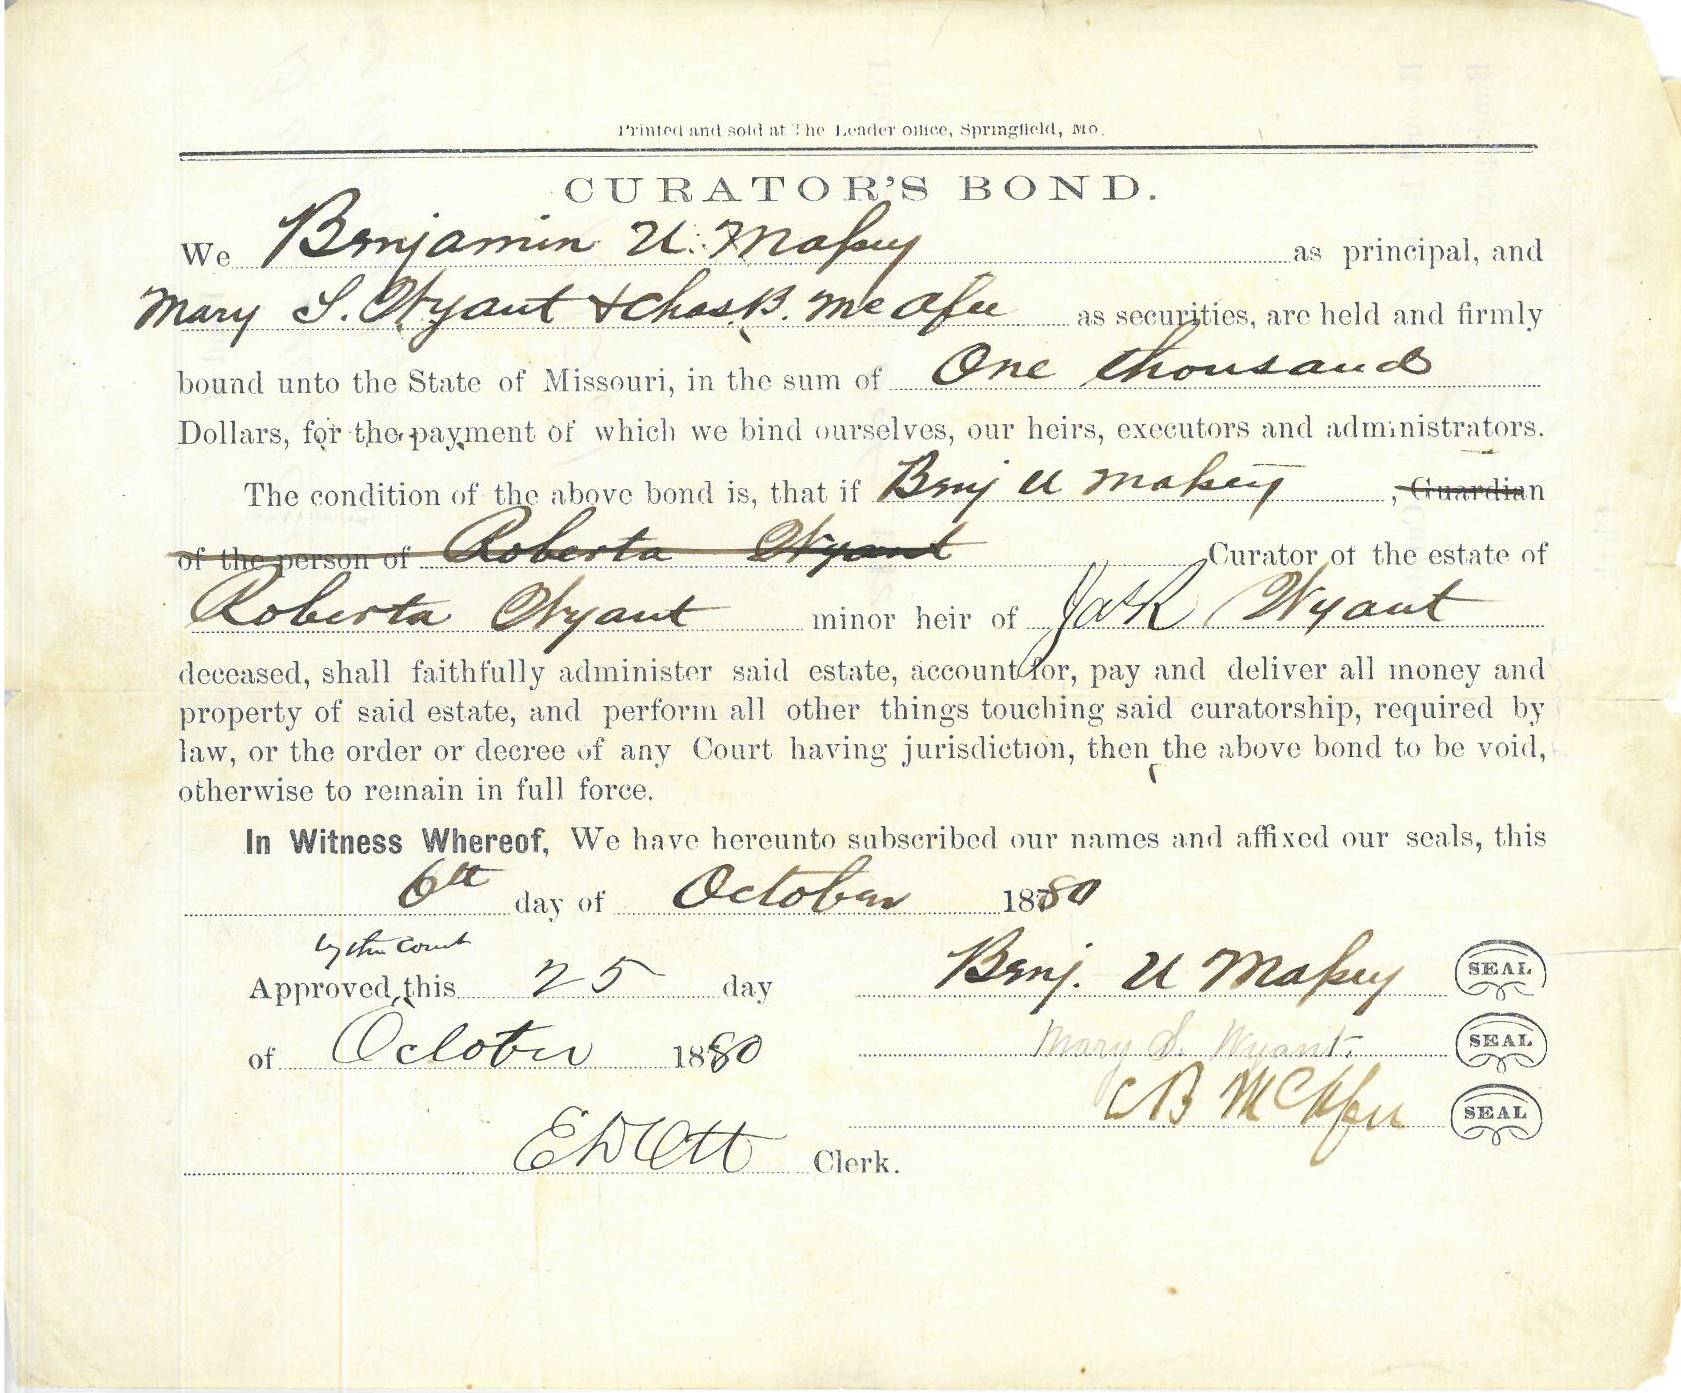 Printed and sold at The Leader office, Springfield, Mo.
CURATOR'S BOND.
We Benjamin U. Makey as principal, and
Mary S. Wyant & Chas. B. McAfee as securities, are held and firmly
bound unto the State of Missouri, in the sum of One thousand
Dollars, for the payment of which we bind ourselves, our heirs, executors and administrators.
The condition of the above bond is, that if Benj U Makey, Guardian
of the person of Roberta Wyant Curator of the estate of
Roberta Wyant minor heir of Wyant
deceased, shall faithfully administer said estate, account for, pay and deliver all money and
property of said estate, and perform all other things touching said curatorship, required by
law, or the order or decree of any Court having jurisdiction, then the above bond to be void,
otherwise to remain in full force.
In Witness Whereof, We have hereunto subscribed our names and affixed our seals, this
6th day of October 1880
by the Court
Approved, this 25 day
Benj. U Makey SEAL
of October 1880
Mary S. Wyant. SEAL
C B McAfee SEAL
E D Ott Clerk.